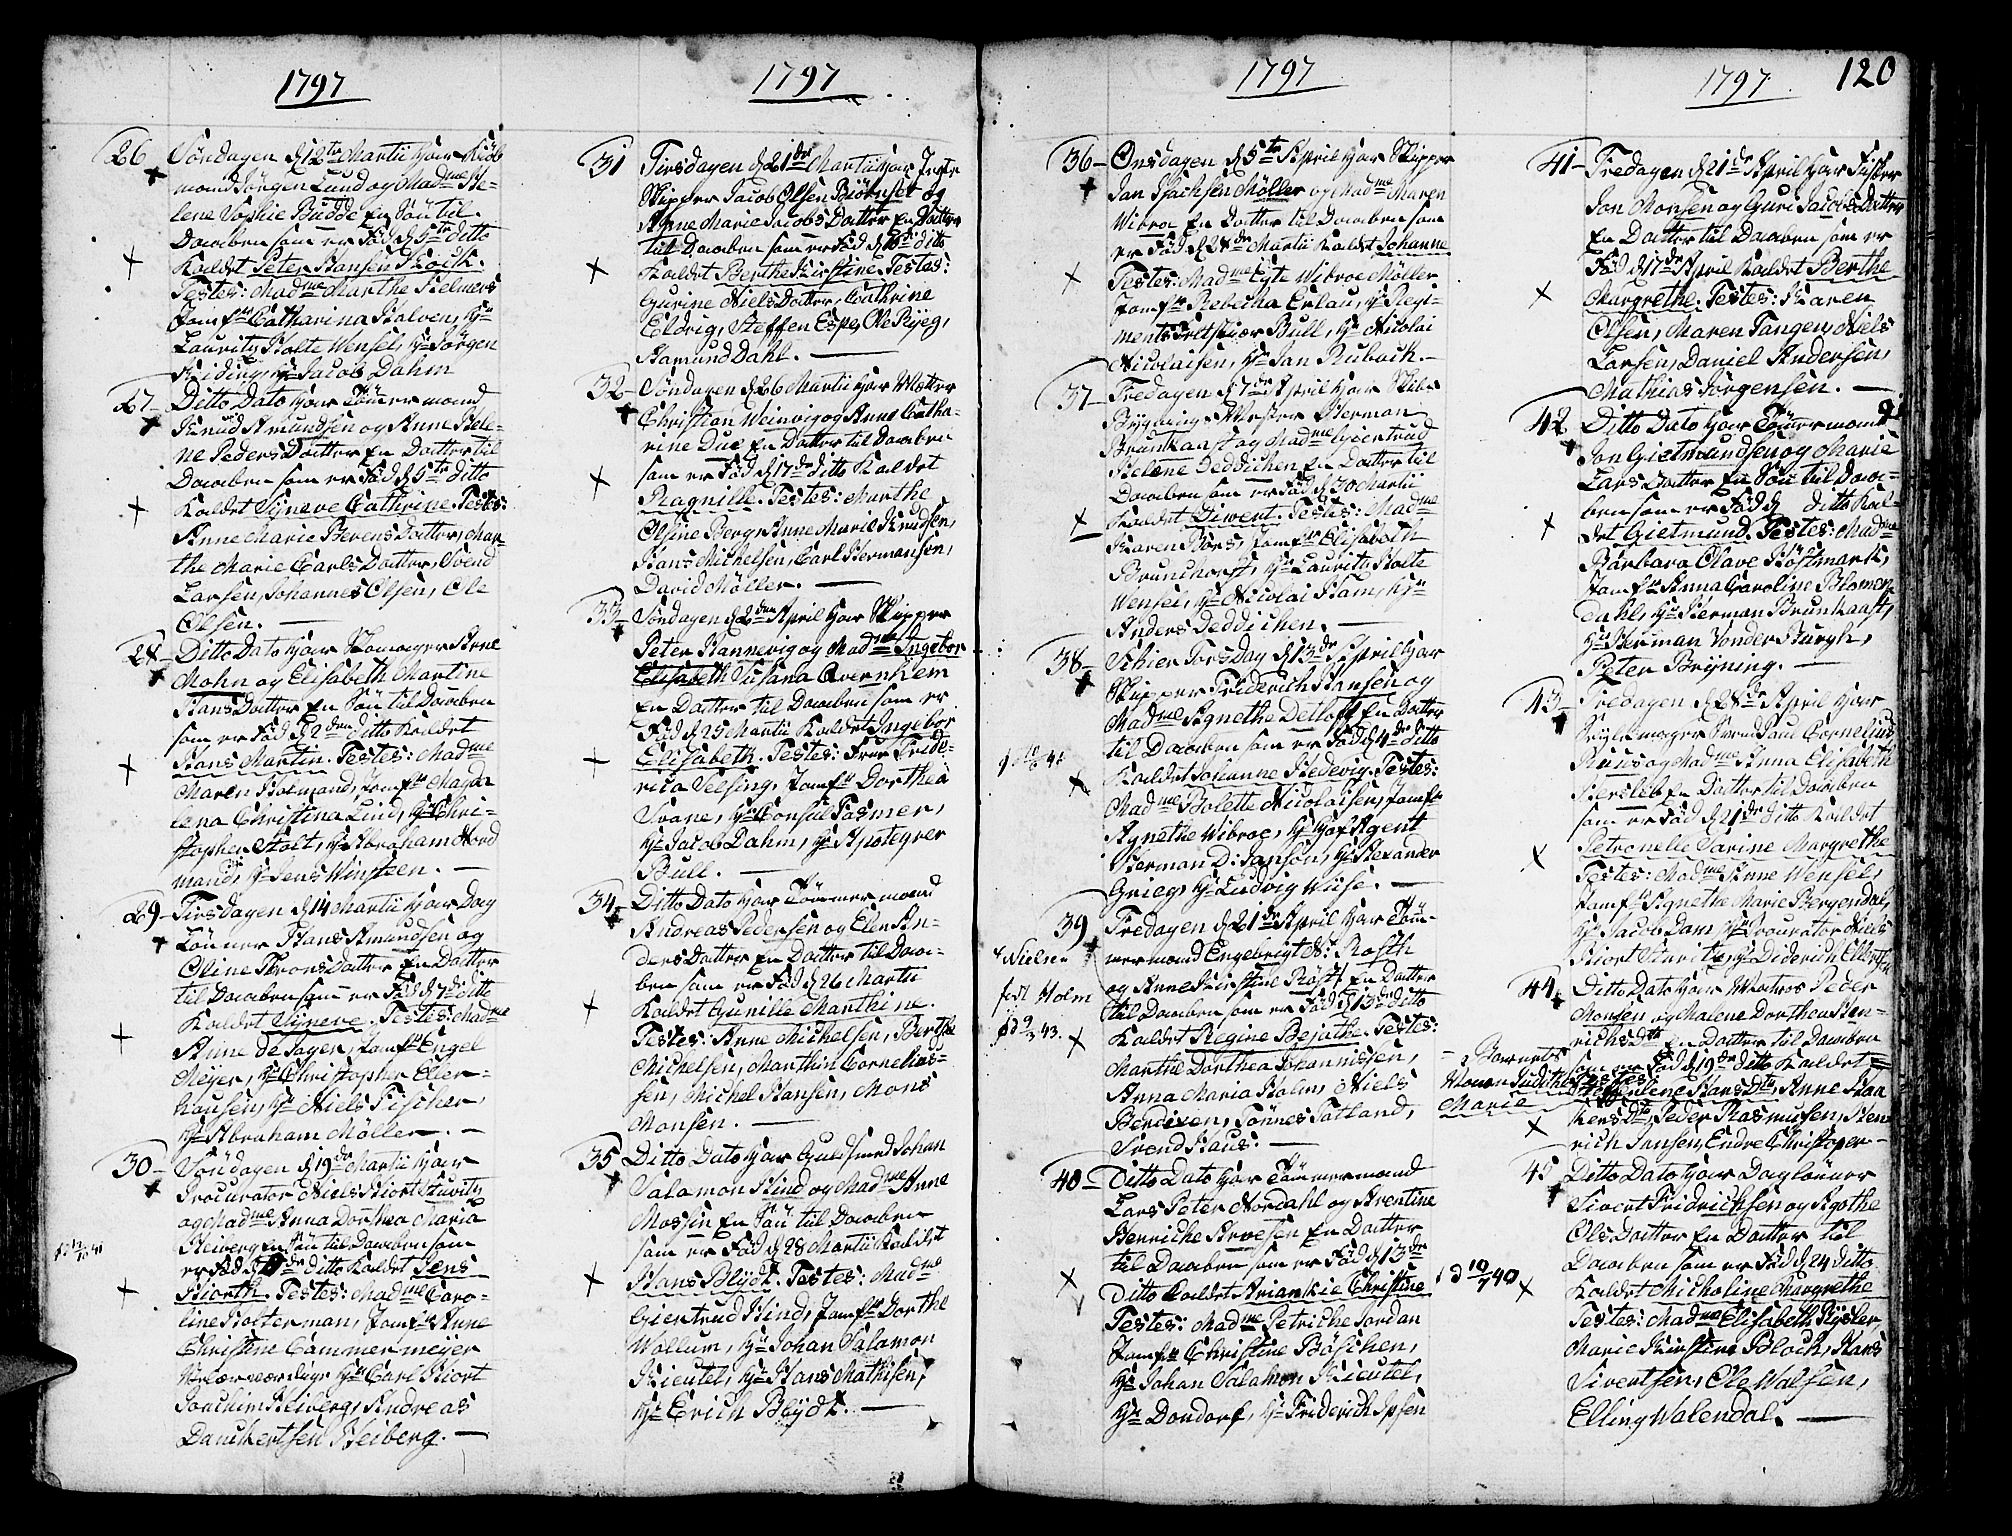 1797
26 Söndagen d 12te Martii har Kiöb
mand Jörgen Lund og Madme He-
lene Sophie Budde En Sön til
Daaben som er Föd d 5te ditto
Kaldet Peter Hansen Kock.
Testes: Madme Marthe Helmers
Jomfr Catharina Halven, Hr
Lauritz Holte Wensel, Hr Jörgen
Kiding, Hr Jacob Dahm
27 Ditto Dato har Tömmermand
Knud Amundsen og Anne Hele-
ne Peders Datter En Datter til
Daaben som er Föd d 5te ditto
Kaldet Synneve Cathrine. Testes:
Anne Marie Berens Datter, Mar-
the Marie Carls Datter, Svend
Larsen, Johannes Olsen, Ole
Olsen.
28 Ditto Dato har Skomager Arne
Mohn og Elisabeth Martine
Hans Datter En Sön til Daaben
som er Föd d 2den ditto Kaldet
Hans Martin. Testes: Madme
Maren Hofmand, Jomfr Magda
lena Christina Lind, Hr Chri-
stopher Stolt, Hr Abraham Nord
mand, Hr Jens Winsteen.
29 Tirsdagen d 14 Martii har Dag
Lönner Hans Amundsen og
Oline Throns Datter En Datter
til Daaben som er Föd d 7de ditto
Kaldet Synneve. Testes: Madme
Anne de Fagen, Jomfr Engel
Meyer, Hr Christopher Eller-
housen, Hr Niels Fischer,
Hr Abraham Möller.
30 Söndagen d 19de Martii har
Procurator Niels Hiort Stuvitz
og Madme Anna Dorthea Maria
Heiberg En Sön til Daaben som
er Föd d ditto Kaldet Jens
Hiorth. Testes: Madme Caro-
line Holterman, Jomfr Anne
Christine Cammermeyer
Velærværdige Hr Carl Hiort
Joachim Heiberg, Andreas
Danckertsen Heiberg.
1797
31 Tirsdagen d 21de Martii har Jægte
Skipper Jacob Olsen Biörnset og
Anne Marie Jacobs Datter En Datter
til Daaben som er Föd d 16de ditto
Kaldet Berthe Kirstine. Testes:
Gurine Niels Datter, Cathrine
Eldrig, Steffen Espe, Ole Ryeg,
Hamund Dahl.
32 Söndagen d 26 Martii har Mötter
Christian Weinwig og Anne Catha-
rine Due En Datter til Daaben
som er Föd d 17de ditto Kaldet
Ragnille. Testes: Marthe
Olsine Berg, Anne Marie Knudsen,
Hans Michelsen, Carl Hermansen,
David Möller.
33 Söndagen d 2den April har Skipper
Peter Rannevig og Madme Ingebor
Elisabeth Susana Qvernhem
En Datter til Daaben som er
Föd d 25 Martii Kaldet Ingebor
Elisabeth. Testes: Frue Fride-
rica Selsing, Jomfr Dorthea
Svane, Hr Consul Fasmer,
Hr Jacob Dahm, Hr Apoteqver
Bull.
34 Ditto Dato har Tömmermand
Andreas Pedersen og Elen An-
ders Datter En Datter til Daa-
ben som er Föd d 26 Martii
Kaldet Gunille Marthine.
Testes: Anne Michelsen, Berthe
Michelsen, Marthin Cornelius-
sen, Michel Hansen, Mons
Monsen.
35 Ditto Dato har Guldsmed Johan
Salamon Hind og Madme Anne
Mossin En Sön til Daaben
som er Föd d 28 Martii Kaldet
Hans Blydt. Testes: Madme
Giertrud Hind, Jomfr Dorthe
Wollum, Hr Johan Salamon
Kieutel, Hr Hans Mathisen,
Hr Erich Blydt.
1797
36 Onsdagen d 5te April har Skipper
Jan Isachsen Möller og Madme Maren
Wibroe En Datter til Daaben som
er Föd d 28de Martii Kaldet Johanne
Testes: Madme Eyte Wibroe Möller
Jomfr Rebecha Erlau, Hr Regi-
ments Feltskiær Bull, Hr Nicolai
Nicolaisen, Hr Jan Rubach.
37 Fredagen d 7de April har Skibs
Bygnings Mester Herman
Brunkaast og Madme Giertrud
Helene Deddichen En Datter til
Daaben som er Föd d 30 Martii
Kaldet Diwent. Testes: Madme
Karen Börs, Jomfr Elisabeth
Brunchorst, Hr Lauritz Holte
Wensel, Hr Nicolai Ham, Hr
Anders Deddichen.
38 Schier Torsdag d 13de April har
Skipper Friderich Hansen og
Madme Agnethe Detloff En Datter
til Daaben som er Föd d 4de ditto
Kaldet Johanne Hedevig. Testes:
Madme Bolette Nicolaisen, Jomfr
Agnethe Wibroe, Hr Hof Agent
Herman D: Janson, Hr Alexander
Grieg, Hr Ludvig Wiise.
39 Fredagen d 21de April har Töm-
mermand Engebrigt N: Rosth
og Anne Kirstine Röst En Datter
til Daaben som er Föd d 13de ditto
Kaldet Regine Bejathe. Testes:
Marthe Dorthea Johannissen,
Anna Maria Holm, Niels
Berdixen, Tönnes Fatland,
Svend Haus:
Nielsen
födt Holm
40 Ditto Dato har Tömmermand
Lars Peter Nordahl og Arentine
Henriche Arvesen En Datter
til Daaben som er Föd d 13de
Ditto Kaldet Ariankie Christine
Testes: Madme Petriche Jordan
Jomfr Christine Böschen,
Hr Johan Salamon Kieutel,
Hr Dondorf, Hr Friderich Ipsen
1797 120
41 Fredagen d 21de April har Fisker
Jon Monsen og Guri Jacobs Datter
En Datter til Daaben som er
Föd d 17de April Kaldet Berthe
Margrethe. Testes: Karen
Olsen, Maren Tangen, Niels
Larsen, Daniel Andersen,
Mathias Jörgensen.
42 Ditto Dato har Tömmermand
Jon Gietmundsen og Marie
Lars Datter En Sön til Daa-
ben som er Föd d ditto Kal-
det Gietmund. Testes: Madme
Barbara Olave Höstmark,
Jomfr Anna Caroline Blomen
dahl, Hr Herman Brunkaast,
Hr Herman Vonder Burgh,
Peter Bryning.
43 Fredagen d 28de April har
Rygemager Svend Sam Cornelius
Ruus og Madme Anna Elisabeth
Hersleb En Datter til Daaben
som er Föd d 21de ditto Kaldet
Petronelle Sarine Margrethe
Testes: Madme Anne Wensel,
Jomfr Agnethe Marie Bergendal,
Hr Jacob Dam, Hr Procurator Niels
Hiort Stuvitz, Hr Diderich Ellertsen
44 Ditto Dato har Matros Peder
Monsen og Malene Dorthea Hen-
richsdtr En Datter til Daaben
som er Föd d 19de ditto Kaldet
Testes: Helene Hansdtr, Anne Haa
kensdtr, Peder Rasmusen, Hen
rich Jansen, Endre Christopher
Barnets
Navn Judithe
Marie
45 Ditto Dato har Daglönner
Sivert Fridrichsen og Agothe
Ols Datter En Datter til
Daaben som er Föd d 24 ditto
Kaldet Micholine Margrethe
Testes: Madme Elisabeth Rysler,
Marie Kirstine Bloch, Hans
Sivertsen, Ole Walsen,
Elling Walendal.